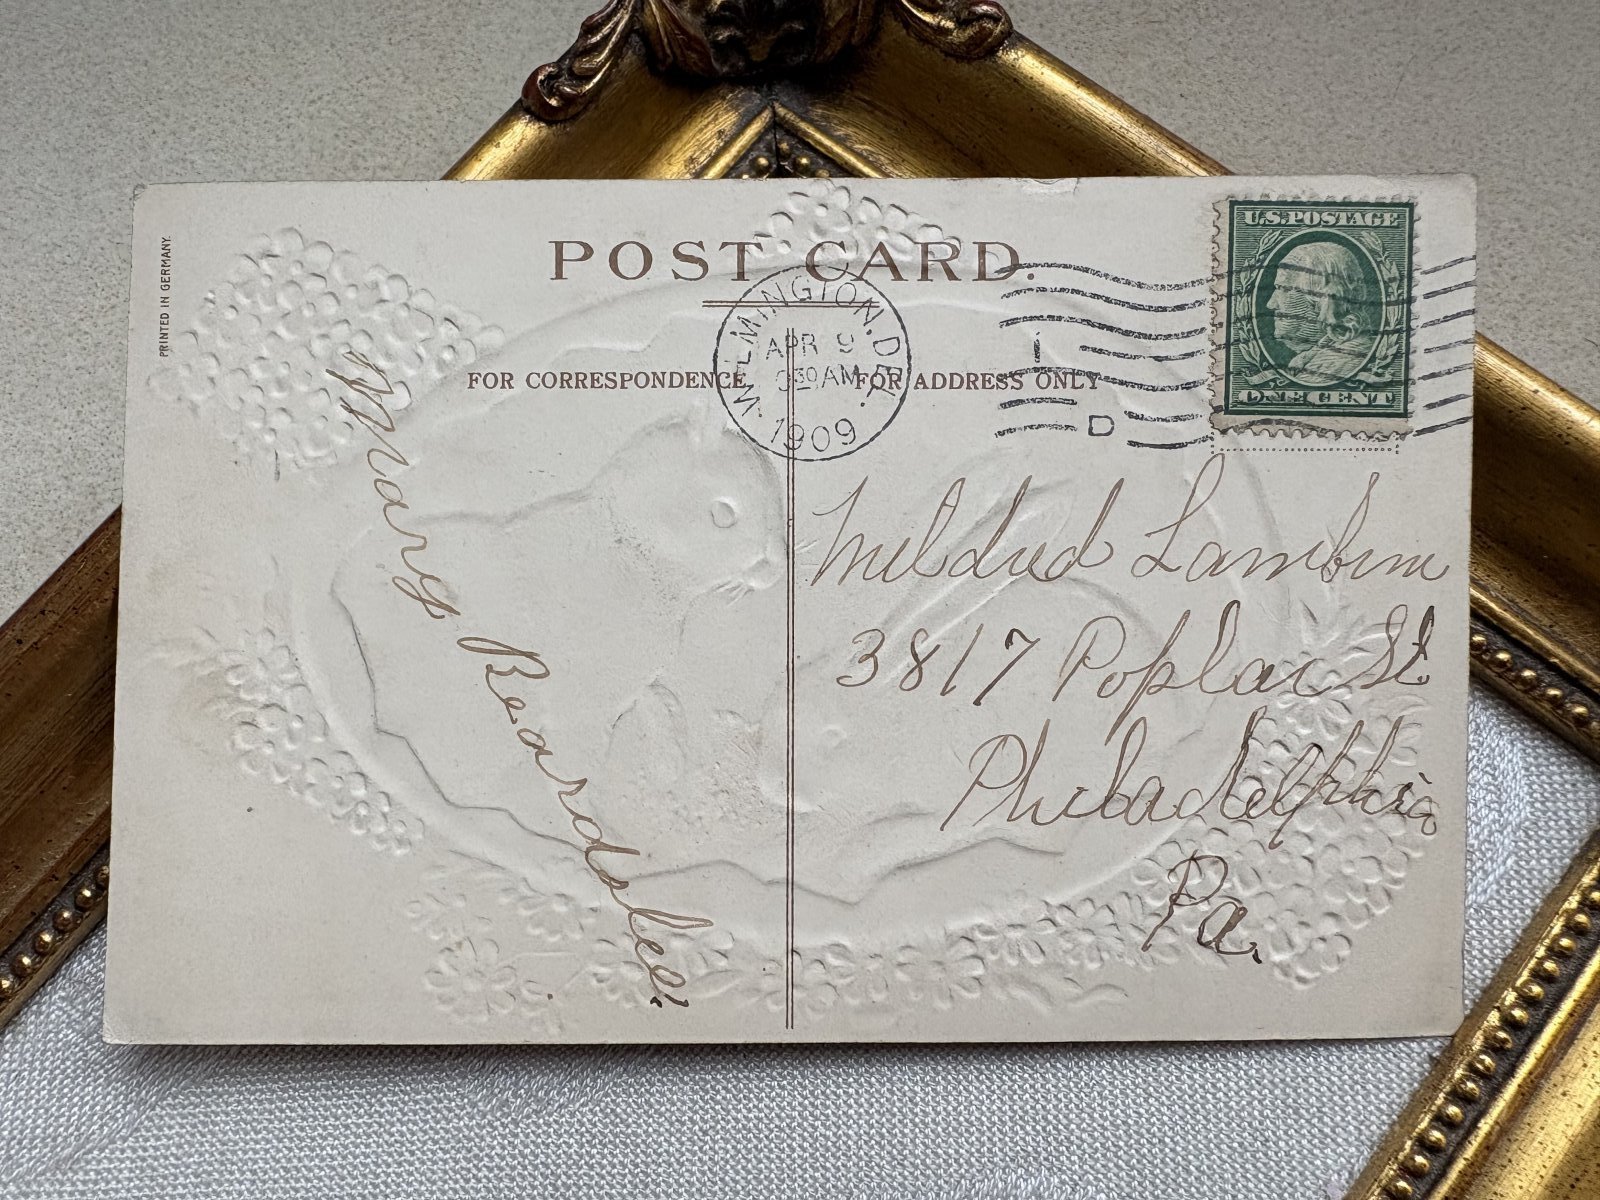 PRINTED IN GERMANY.
POST CARD.
U.S. POSTAGE
ONE CENT
WILMINGTON. DEL.
APR 9
30 AM
1909
D
FOR CORRESPONDENCE
FOR ADDRESS ONLY
Mary Beardslee.
Mildred
3817 Poplar St
Philadelphia
Pa.